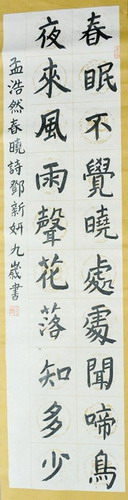 春眠不覺曉處處聞啼鳥
夜來風雨聲花落知多少
孟浩然春曉詩鄧新妍九歲書